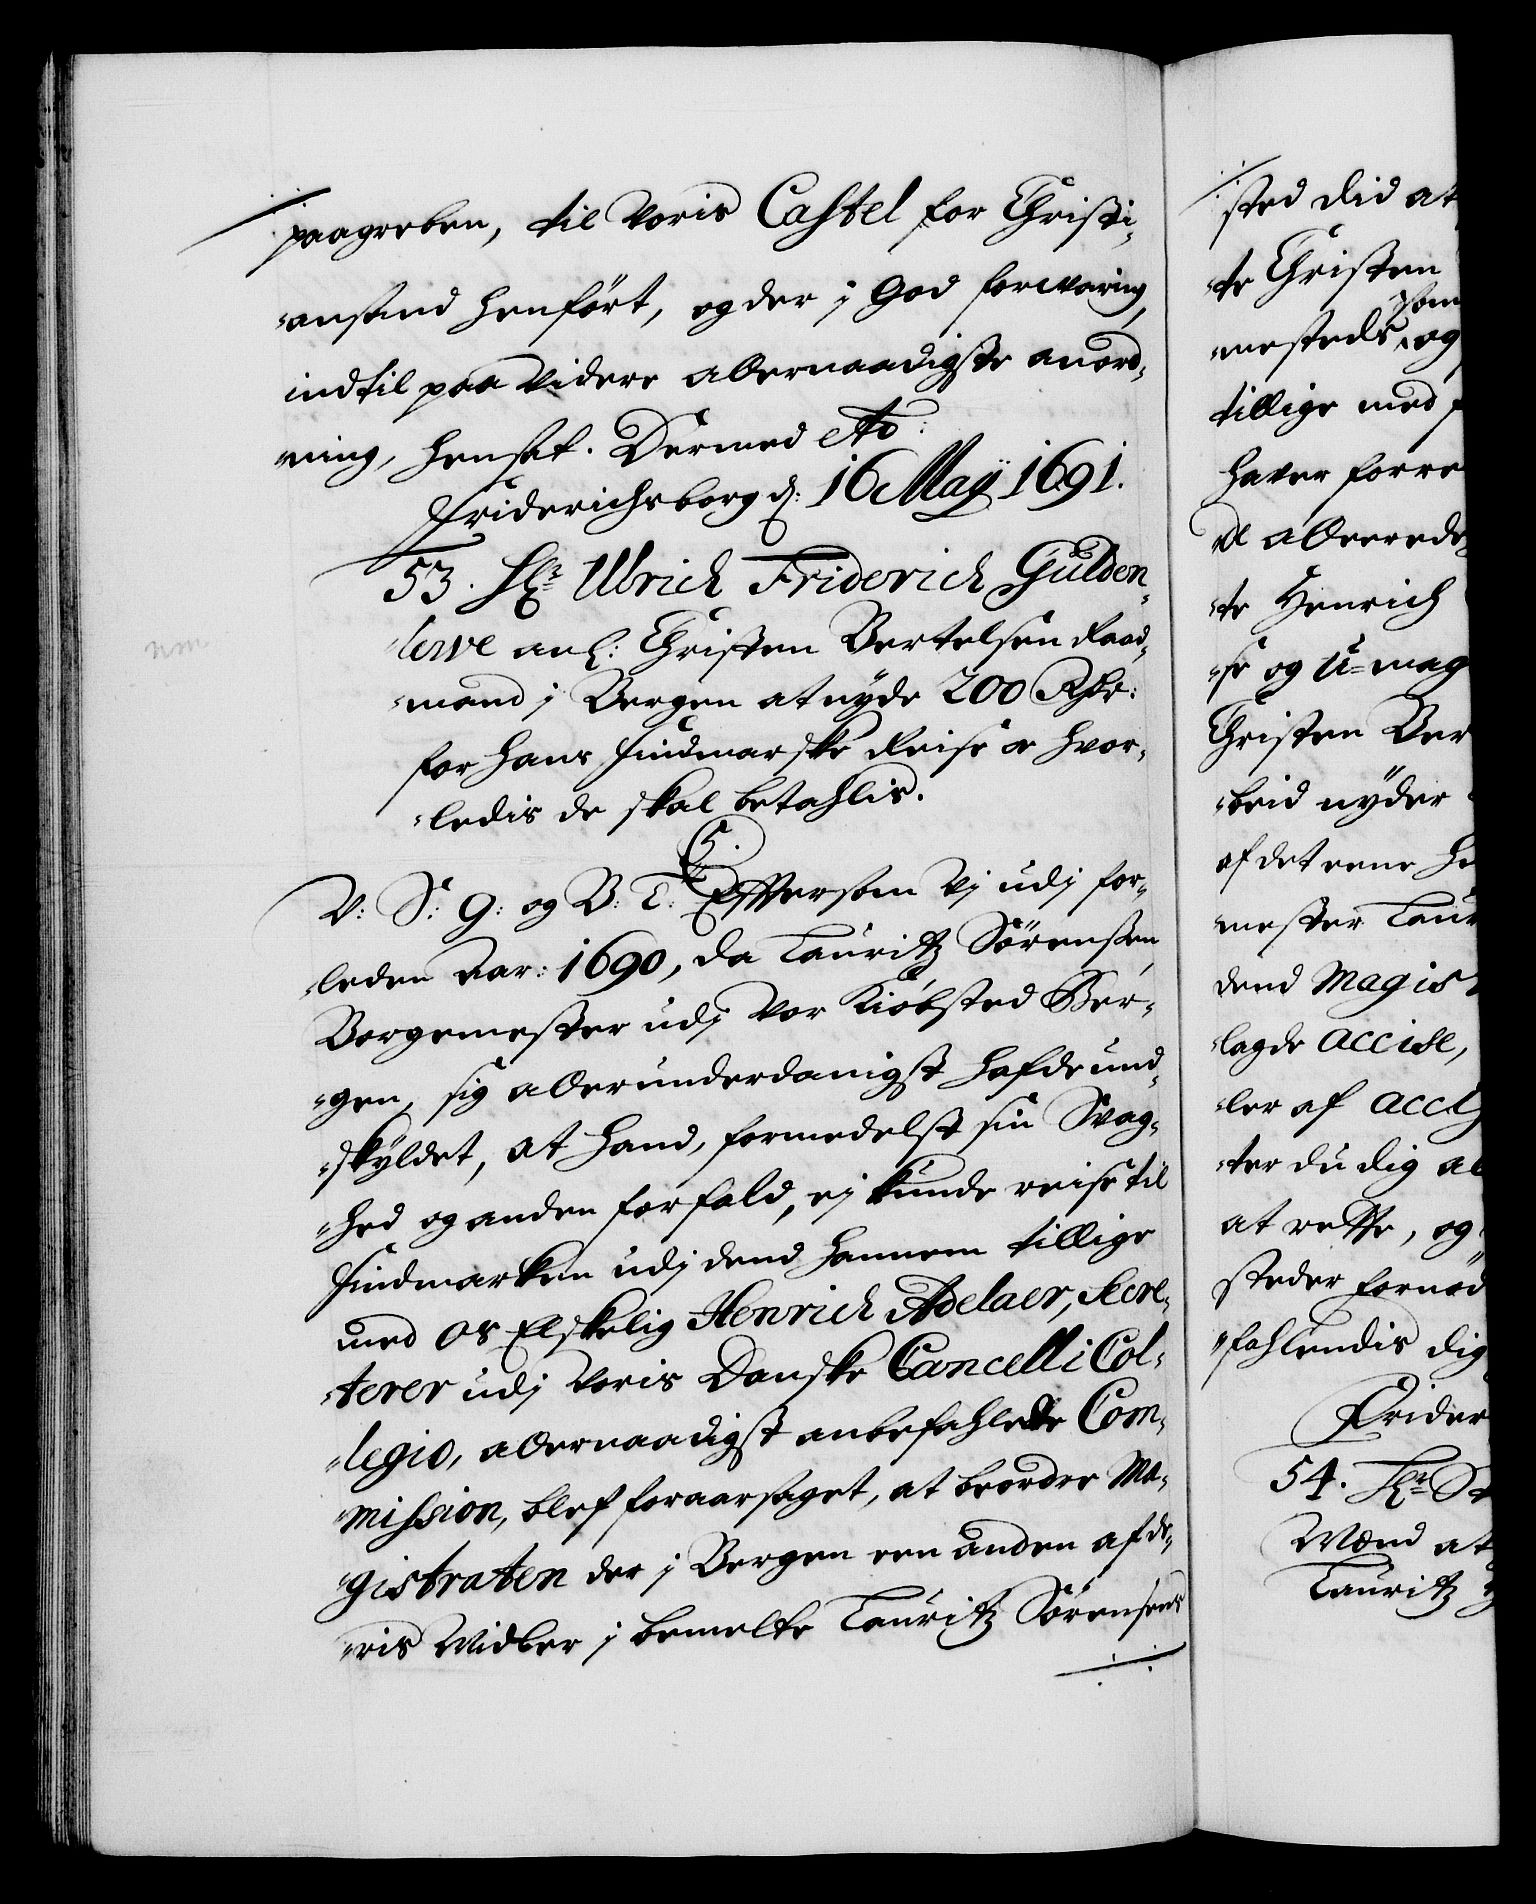 paagreben, til voris Castel for Christi-
-ansand henført, og der i God forwaring,
indtil paa videre allernaadigste anord-
ning, hensat. Dermed etc:
Friderichsborg d: 16 Maij 1691.
53. Hr: Ulrich Friderich Gulden-
-lewe anl: Christen Bertelsen Raad-
-mand i Bergen at nyde 200 Rdr:
for hans Findmarske Reise og hvor-
-ledis de skal betahlis.
C5.
V: S: G: og B: T: Eftersom Vi udj for-
-leden Aar: 1690, da Lauritz Sörensen
Borgemester udj Vor Kiøbsted Ber-
-gen, sig allerunderdanigst hafde und-
-skyldet, at hand, formedelst sin Svag-
-hed og anden forfald, ej kunde reise til
Findmarken udj dend hannem tillige
med Os Elskelig Henrich Adelaer, Secre-
-terer udj Voris Danske Cancelli Col-
-legio, allernaadigst anbefahlede Com-
-mission, blef foraarsaget, at beordre Ma-
-gistraten der i Bergen een anden af de-
-ris Midler i bemelte Lauritz Sörensens
sted did at
-te Christen
som
-mesteds og
tillige med
haver forre
-te Henrich
-se og U-mag
Christen Ber
-beid nyder
af det eene
-mester Laur
dend Magist
-lagde Accise,
-ler af Acci
-ter du dig al
at rette, og
steder fornød
-fahlendis dig
Frider
54. Hr: St
Wend at
Lauritz